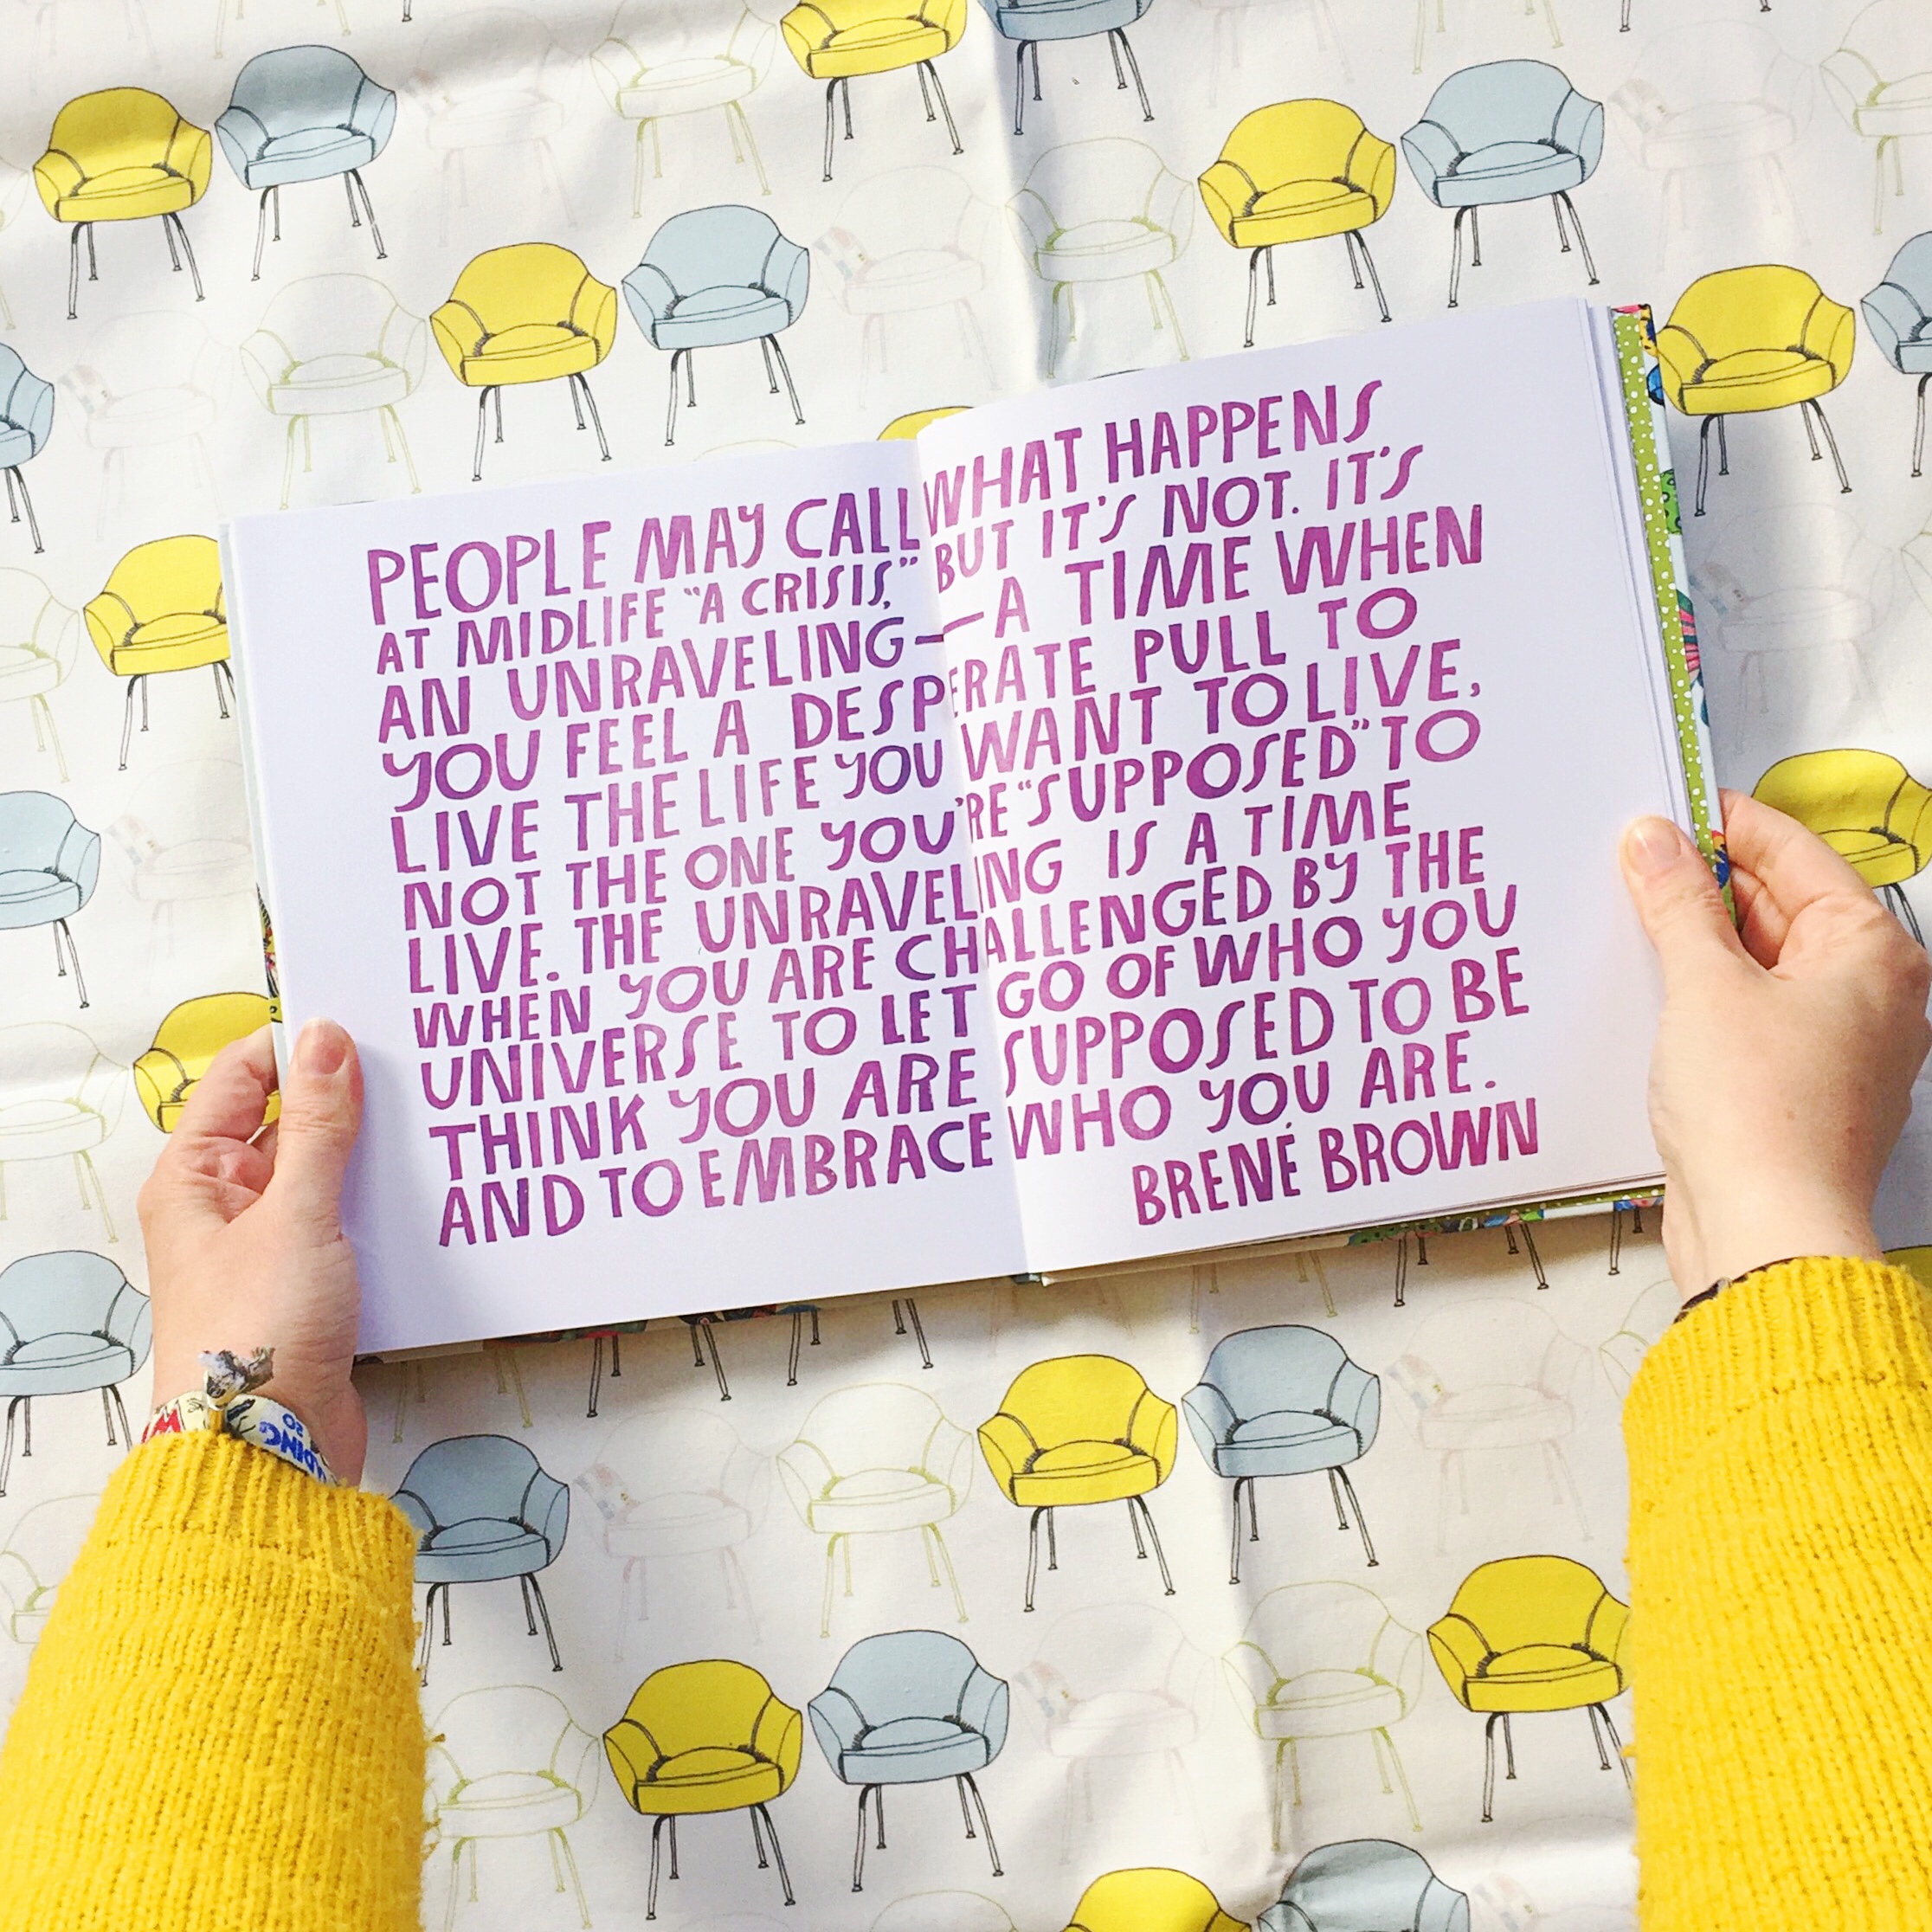 PEOPLE MAY CALL WHAT HAPPENS
AT MIDLIFE “A CRISIS,” BUT IT'S NOT. IT'S
AN UNRAVELING—A TIME WHEN
YOU FEEL A DESPERATE PULL TO
LIVE THE LIFE YOU WANT TO LIVE,
NOT THE ONE YOU'RE “SUPPOSED” TO
LIVE. THE UNRAVELING IS A TIME
WHEN YOU ARE CHALLENGED BY THE
UNIVERSE TO LET GO OF WHO YOU
THINK YOU ARE SUPPOSED TO BE
AND TO EMBRACE WHO YOU ARE.
BRENÉ BROWN